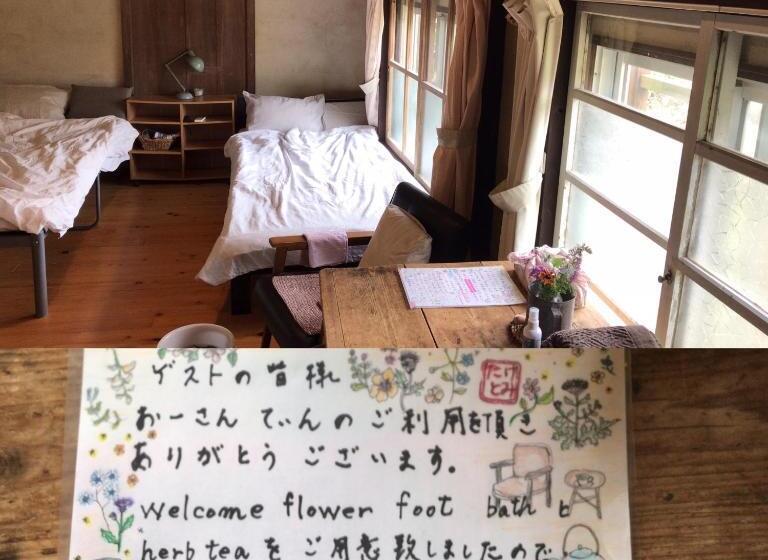 ゲストの皆様
たけとみ
おーさん てぃんのご利用を頂き
ありがとう ございます。
welcome flower foot bath と
herb tea を ご用意致しましたので